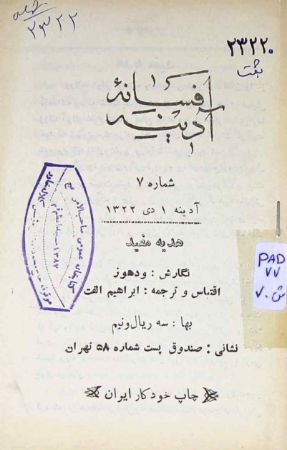 ۲۳۲۲
۲۳۲۲۰
ثبت
افسانهٔ
آدینه
شماره ۷
آدینه ۱ دی ۱۳۲۲
هدیه مفید
نگارش : ودهوز
اقتباس و ترجمه : ابراهیم الفت
بها : سه ریال و نیم
نشانی : صندوق پست شماره ۵۸ تهران
چاپ خودکار ایران
PAD
۷۷
ش ۷۰
کتابخانه عمومی صاحب الامر
۱۳۸۷